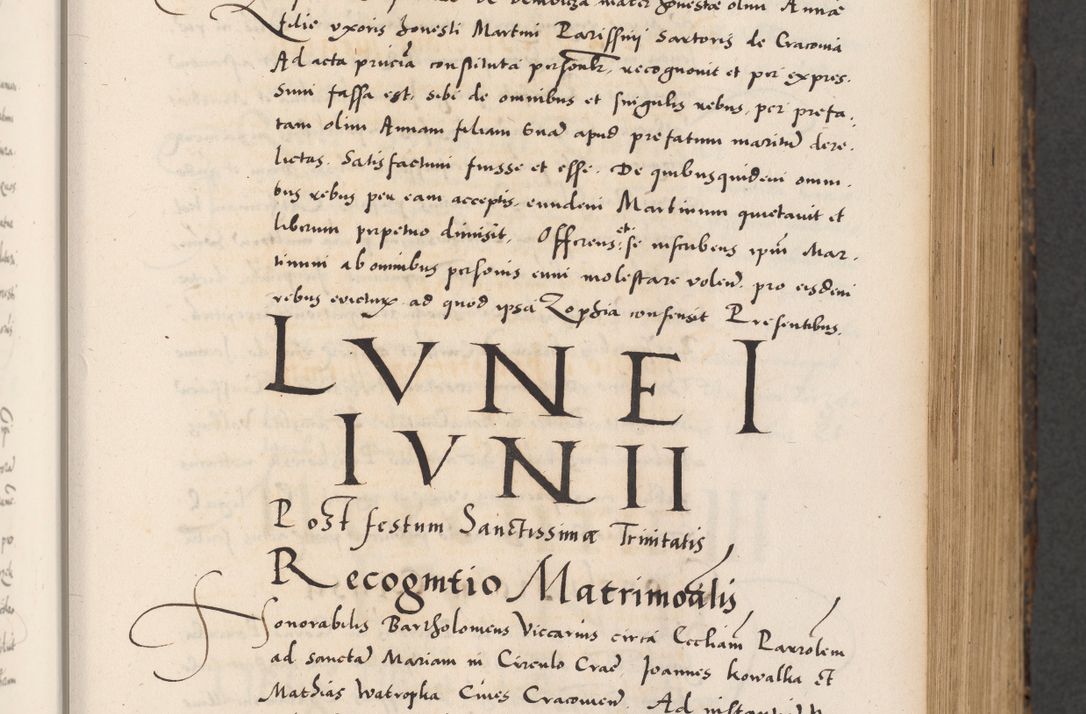 de Dembicza mater honestæ olim Annæ
filie vxoris honesti Martini Parissinij Sartoris de Cracouia
Ad acta prńcia constituta personlr, recognouit et per expres-
sum fassa est, sibi de omnibus et singulis rebus, per prefa-
tam olim Annam filiam suā apud prefatum maritū dere-
lictas. Satisfactum fuisse et esse. De quibusquidem omni-
bus rebus per eam acceptis, eundem Martinum quietauit et
liberum perpetuo dimisit, Offerens et se inscribens ipm̄ Mar-
tinum ab omnibus personis eum molestare volen̄. pro eisdem
rebus evictur. ad quod ipsa Zophia consensit Presentibus.
LVNE I
IVNII
Post festum Sanctissimæ Trinitatis
Recogntio Matrimoālis
Honorabilis Bartholomeus Viccarius circa Eccliam Parrolem
ad sanctā Mariam in Circulo Crac̄. Joannes kowalka et
Mathias Watropka Ciues Cracouien̄. Ad